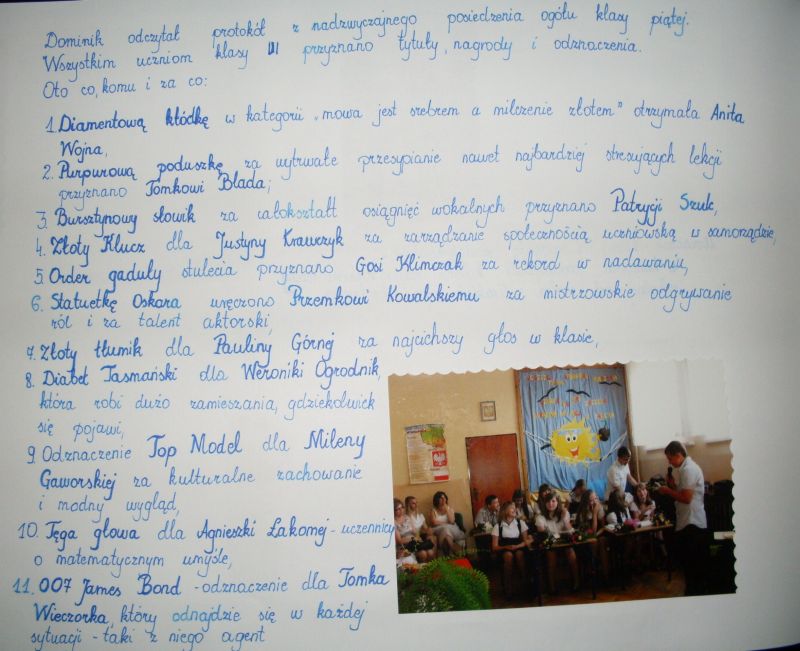 Dominik odczytał protokół z nadzwyczajnego posiedzenia ogółu klasy piątej.
Wszystkim uczniom klasy VI przyznano tytuły, nagrody i odznaczenia.
Oto co, komu i za co:
1. Diamentową kłódkę w kategorii „mowa jest srebrem a milczenie złotem" otrzymała Anita
Wojna,
2. Purpurową poduszkę za wytrwałe przesypianie nawet najbardziej stresujących lekcji
przyznano Tomkowi Blada;
3. Bursztynowy słowik za całokształt osiągnięć wokalnych przyznano Patrycji Szulc,
4. Złoty Klucz dla Justyny Krawczyk za zarządzanie społecznością uczniowską w samorządzie,
5. Order gaduły stulecia przyznano Gosi Klimczak za rekord w nadawaniu,
6. Statuetkę Oskara wręczono Przemkowi Kowalskiemu za mistrzowskie odgrywanie
ról i za talent aktorski,
7. Złoty tłumik dla Pauliny Górnej za najcichszy głos w klasie,
8. Diabeł Tasmański dla Weroniki Ogrodnik,
która robi dużo zamieszania, gdziekolwiek
się pojawi,
9. Odznaczenie Top Model dla Mileny
Gaworskiej za kulturalne zachowanie
i modny wygląd,
10. Tęga głowa dla Agnieszki Łakomej - uczennicy
o matematycznym umyśle,
11. 007 James Bond - odznaczenie dla Tomka
Wieczorka, który odnajdzie się w każdej
sytuacji - taki z niego agent